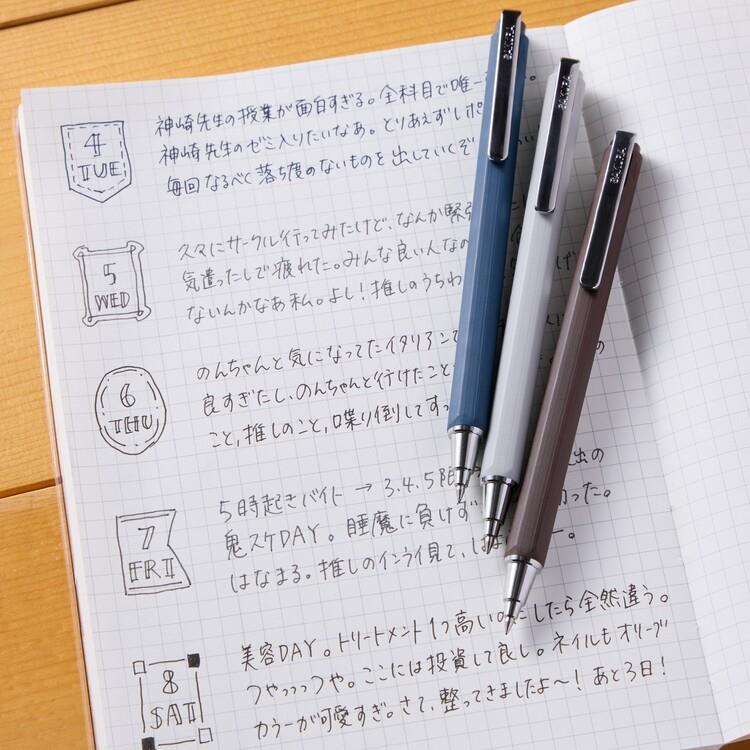 4
TUE
神崎先生の授業が面白すぎる。全科目で唯一
神崎先生のゼミ入りたいなあ。とりあえずレポ
毎回なるべく落ち度のないものを出していくぞ
5
WED
久々にサークル行ってみたけど、なんか緊張
気遣ったしで疲れた。みんな良い人なの
ないんかなあ私。よし！推しのうちわ
6
THU
のんちゃんと気になってたイタリアンで
良すぎたし、のんちゃんと行けたこと
こと、推しのこと、喋り倒してすっ
7
FRI
5時起きバイト → 3.4.5限 出の
鬼スケDAY。睡魔に負けず 切った。
はなまる。推しのインライ見て、
8
SAT
美容DAY。トリートメント1つ高いのにしたら全然違う。
つやっっっつや。ここには投資して良し。ネイルもオリーブ
カラーが可愛すぎ。さて、整ってきましたよ〜！あと3日！
SAKURA
SAKURA
SAKURA